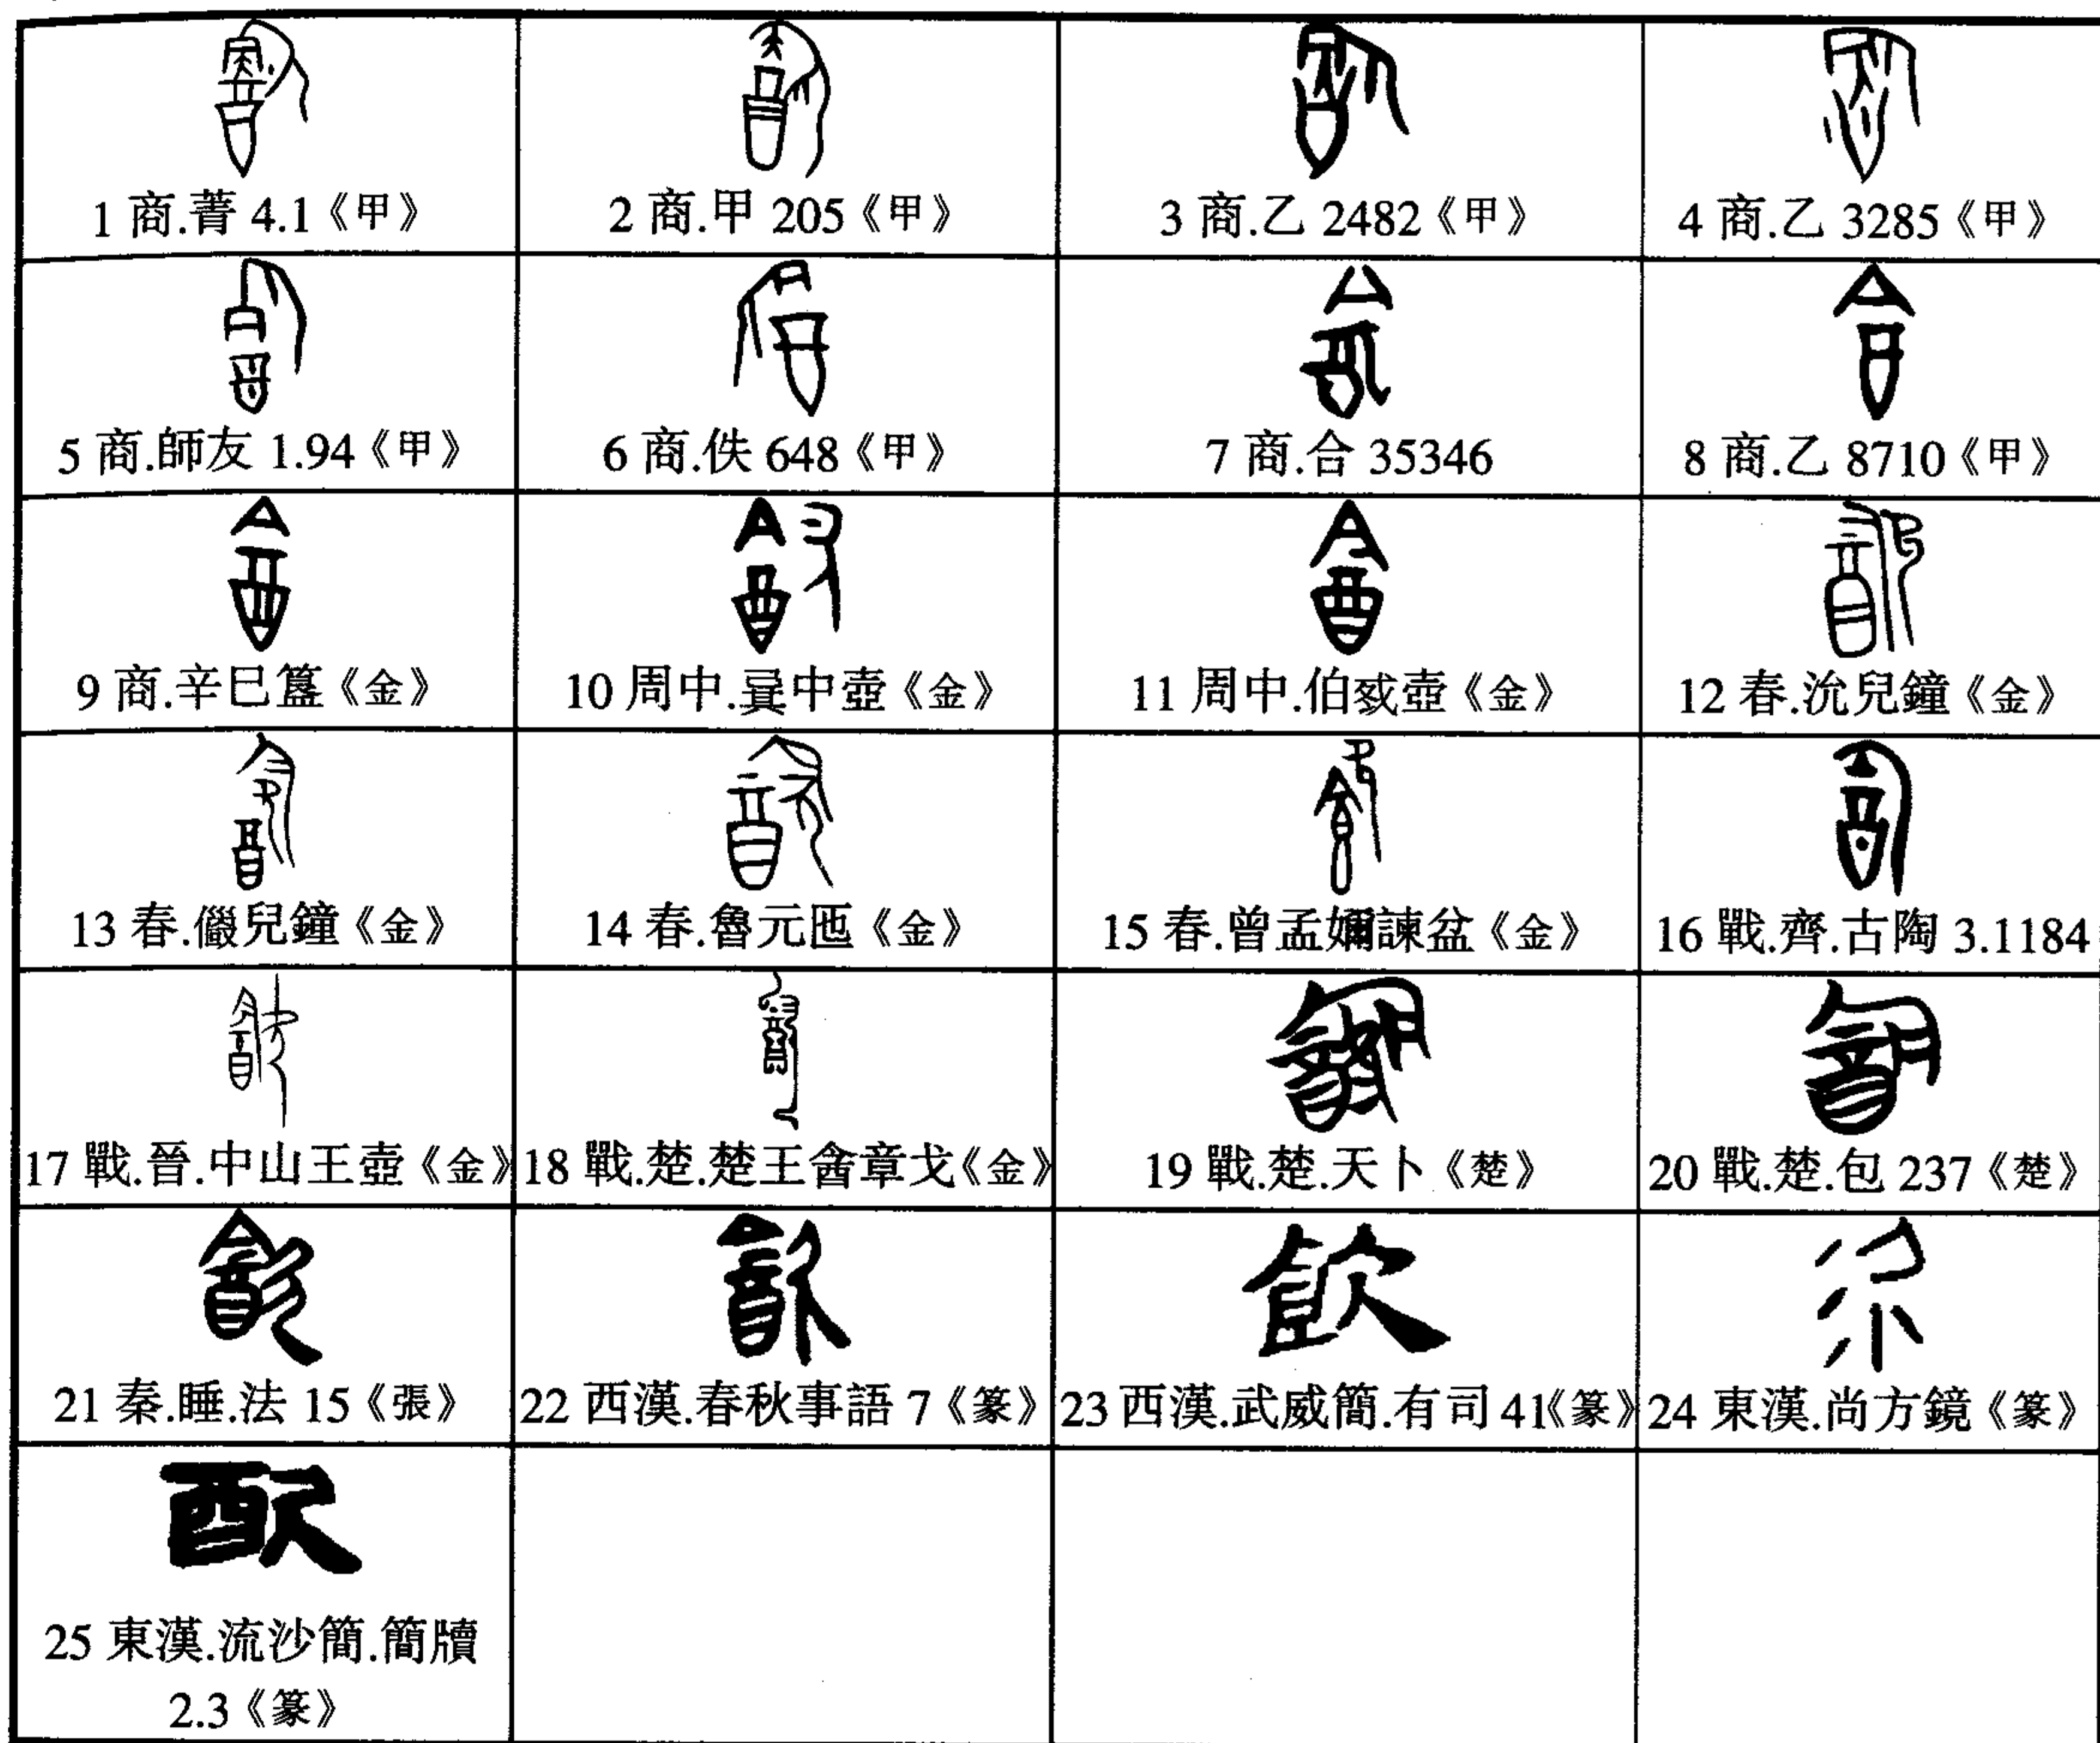 1 商.菁 4.1《甲》
2 商.甲 205《甲》
3 商.乙 2482《甲》
4 商.乙 3285《甲》
5 商.師友 1.94《甲》
6 商.佚 648《甲》
7 商.合 35346
8 商.乙 8710《甲》
9 商.辛巳簋《金》
10 周中.㠱中壺《金》
11 周中.伯㦰壺《金》
12 春.沇兒鐘《金》
13 春.儠兒鐘《金》
14 春.魯元匜《金》
15 春.曾孟嬭諫盆《金》
16 戰.齊.古陶 3.1184
17 戰.晉.中山王壺《金》
18 戰.楚.楚王酓章戈《金》
19 戰.楚.天卜《楚》
20 戰.楚.包 237《楚》
21 秦.睡.法 15《張》
22 西漢.春秋事語 7《篆》
23 西漢.武威簡.有司 41《篆》
24 東漢.尚方鏡《篆》
25 東漢.流沙簡.簡牘
2.3《篆》